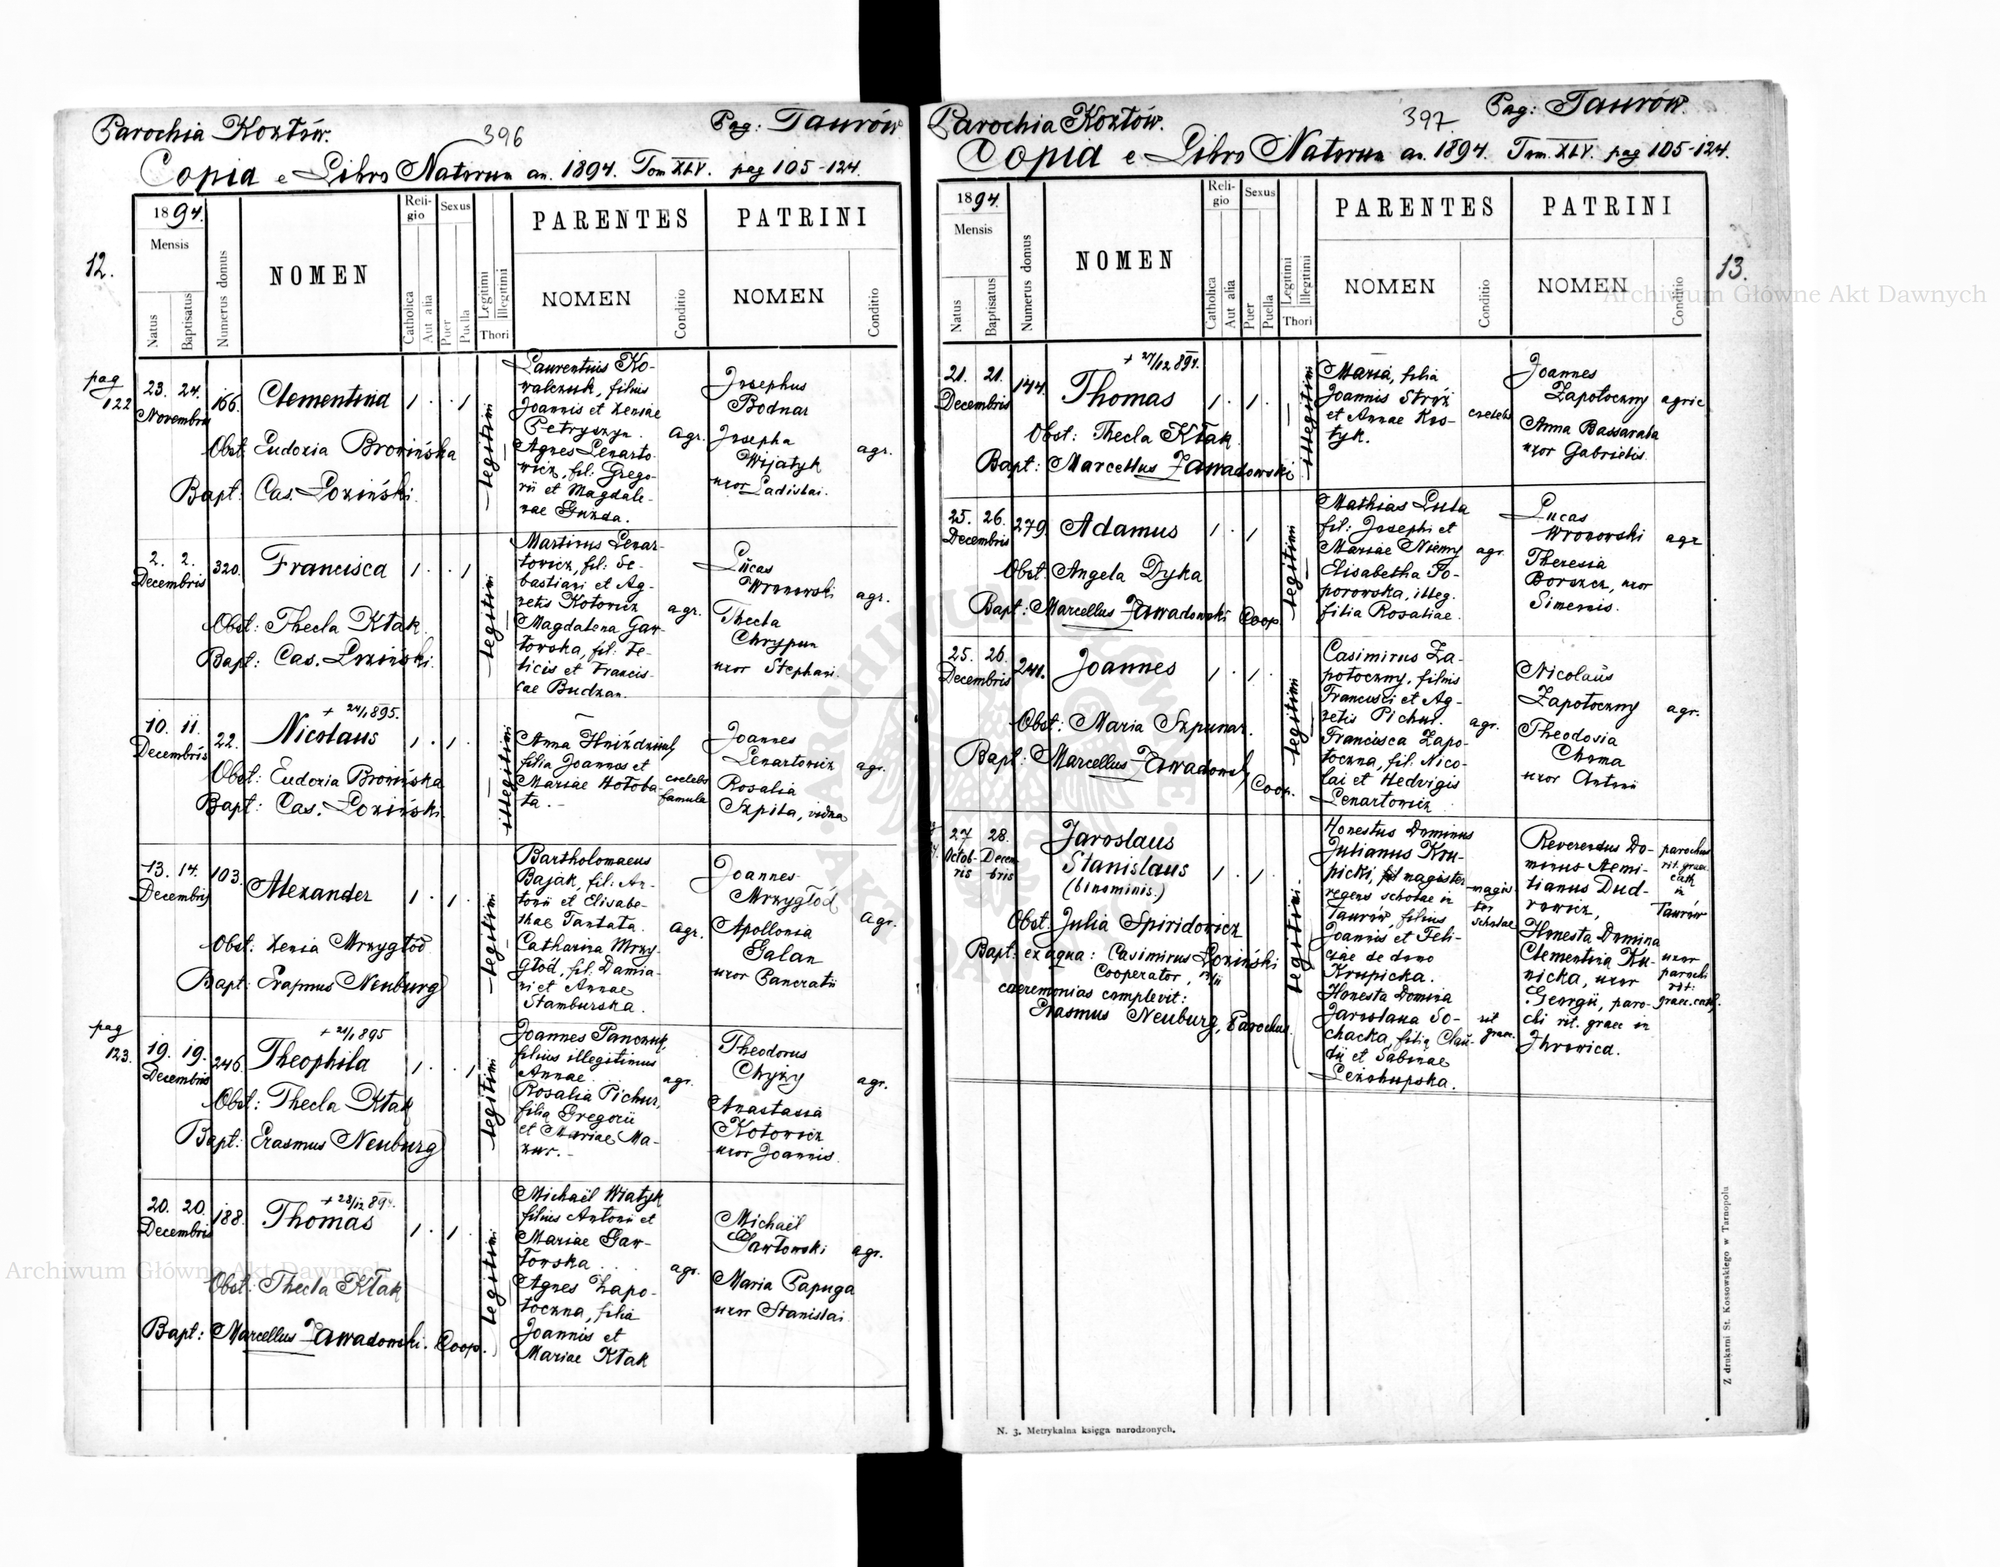 Parochia Kozłów.
396
Pag: Taurów
Copia e Libro Natorum an. 1894. Tom XLV. pag 105-124.
12.
1894.
Mensis
Natus
Baptisatus
Numerus domus
NOMEN
Religio
Catholica
Aut alia
Sexus
Puer
Puella
Legitimi
Illegitimi
Thori
PARENTES
NOMEN
Conditio
PATRINI
NOMEN
Conditio
pag
122
23. 24.
Novembris
166.
Clementina
1 . . 1
legitimi
Obst: Eudoxia Browińska
Bapt: Cas. Łoziński.
Laurentius Ko-
walczuk, filius
Joannis et Xeniae
Petryszyn.
Agnes Lenarto-
wicz, fil: Grego-
rii et Magdale-
nae Guzda.
agr.
Josephus
Bodnar
Josepha
Wijatyk
uxor Ladislai.
agr.
2. 2.
Decembris
320.
Francisca
1 . . 1
legitimi
Obst: Thecla Kłak
Bapt: Cas. Łoziński.
Martinus Lenar-
towicz, fil: Se-
bastiani et Ag-
netis Kotowicz
Magdalena Gaw-
łowska, fil: Fe-
licis et Francis-
cae Budzan.
agr.
Lucas
Wronowski
Thecla
Chrypun
uxor Stephani.
agr.
10. 11.
Decembris
22.
+ 24/1 895.
Nicolaus
1 . 1 .
illegitimi
Obst: Eudoxia Browińska
Bapt: Cas. Łoziński.
filia Joannis et
Mariae Hołoba-
ta. -
caelebs
famula
Joannes
Lenartowicz
Rosalia
Szpila, vidua
agr.
13. 14.
Decembris
103.
Alexander
1 . 1 .
legitimi
Obst: Xenia Mrzygłód
Bapt: Erasmus Neuburg
Bartholomaeus
Bajak, fil: An-
tonii et Elisabe-
thae Tantata.
Catharina Mrzy-
głód, fil: Damia-
ni et Annae
Stamburska.
agr.
Joannes
Mrzygłód
Apollonia
Galan
uxor Pancratii
agr.
pag
123.
19. 19.
Decembris
246.
+ 21/1 895
Theophila
1 . . 1
legitimi
Obst: Thecla Kłak
Bapt: Erasmus Neuburg
Joannes Panczuk,
filius illegitimus
Annae.
Rosalia Pichur,
filia Gregorii
et Mariae Ma-
zur. -
agr.
Theodorus
Chyży
Anastasia
Kotowicz
uxor Joannis.
agr.
20. 20.
Decembris
188.
+ 28/12 894.
Thomas
1 . 1 .
legitimi
Obst: Thecla Kłak
Bapt: Marcellus Zawadowski. Coop.
Michaël Wiatyk
filius Antonii et
Mariae Gaw-
łowska . . .
Agnes Zapo-
toczna, filia
Joannis et
Mariae Kłak
agr.
Michaël
Gawłowski
Maria Papuga
uxor Stanislai.
agr.
Parochia Kozłów.
397.
Pag: Taurów.
Copia e Libro Natorum an. 1894. Tom. XLV. pag 105-124.
13.
1894.
Mensis
Natus
Baptisatus
Numerus domus
NOMEN
Religio
Catholica
Aut alia
Sexus
Puer
Puella
Legitimi
Illegitimi
Thori
PARENTES
NOMEN
Conditio
PATRINI
NOMEN
Conditio
21. 21.
Decembris
144.
+ 27/12 894.
Thomas
1 . 1 .
illegitimi
Obst: Thecla Kłak
Bapt: Marcellus Zawadowski
Maria, filia
Joannis Stróż
et Annae Kos-
tyk.
caelebs
Joannes
Zapotoczny
Anna Bassaraba
uxor Gabrielis.
agric
25. 26.
Decembris
279.
Adamus
1 . 1
legitimi
Obst: Angela Dyka
Bapt: Marcellus Zawadowski Coop.
Mathias Lula
fil: Josephi et
Mariae Niemy
Elisabetha To-
porowska, illeg.
filia Rosaliae.
agr.
Lucas
Wronowski
Theresia
Borszcz, uxor
Simeonis.
agr
25. 26.
Decembris
241.
Joannes
1 . 1 .
legitimi
Obst: Maria Szpunar.
Bapt: Marcellus Zawadowski
Coop.
Casimirus Za-
potoczny, filius
Francisci et Ag-
netis Pichur.
Francisca Zapo-
toczna, fil. Nico-
lai et Hedvigis
Lenartowicz
agr.
Nicolaus
Zapotoczny
Theodosia
Choma
uxor Antonii
agr.
27 28.
Octob-
ris
Decem-
bris
Jaroslaus
Stanislaus
(binominis.)
1 . 1 .
legitimi.
Obst: Julia Spiridowicz
Bapt: ex aqua: Casimirus Łoziński
Cooperator,
caeremonias complevit:
Erasmus Neuburg, Parochus.
Honestus Dominus
Julianus Kru-
picki, magister
regens scholae in
Taurów, filius
Joannis et Feli-
ciae de domo
Krupicka.
Honesta Domina
Jaroslava So-
chacka, filia Clau-
dii et Sabinae
Leżohupska.
magis-
ter
scholae
rit
graec.
Reverendus Do-
minus Aemi-
lianus Dud-
rowicz,
Honesta Domina
Clementina Ku-
nicka, uxor
Georgii, paro-
chi rit. graec in
Jhrowica.
parochus
rit. graec.
cath
in
Taurów
uxor
parochi
rit:
graec. cath.
N. 3. Metrykalna księga narodzonych.
Z drukarni St. Kossowskiego w Tarnopolu
Archiwum Główne Akt Dawnych
Archiwum Główne Akt Dawnych